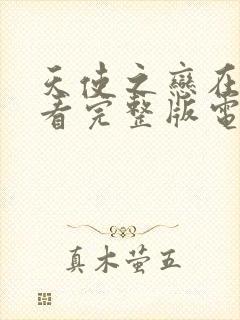 天使之戀在
看完整版電
真木萤五